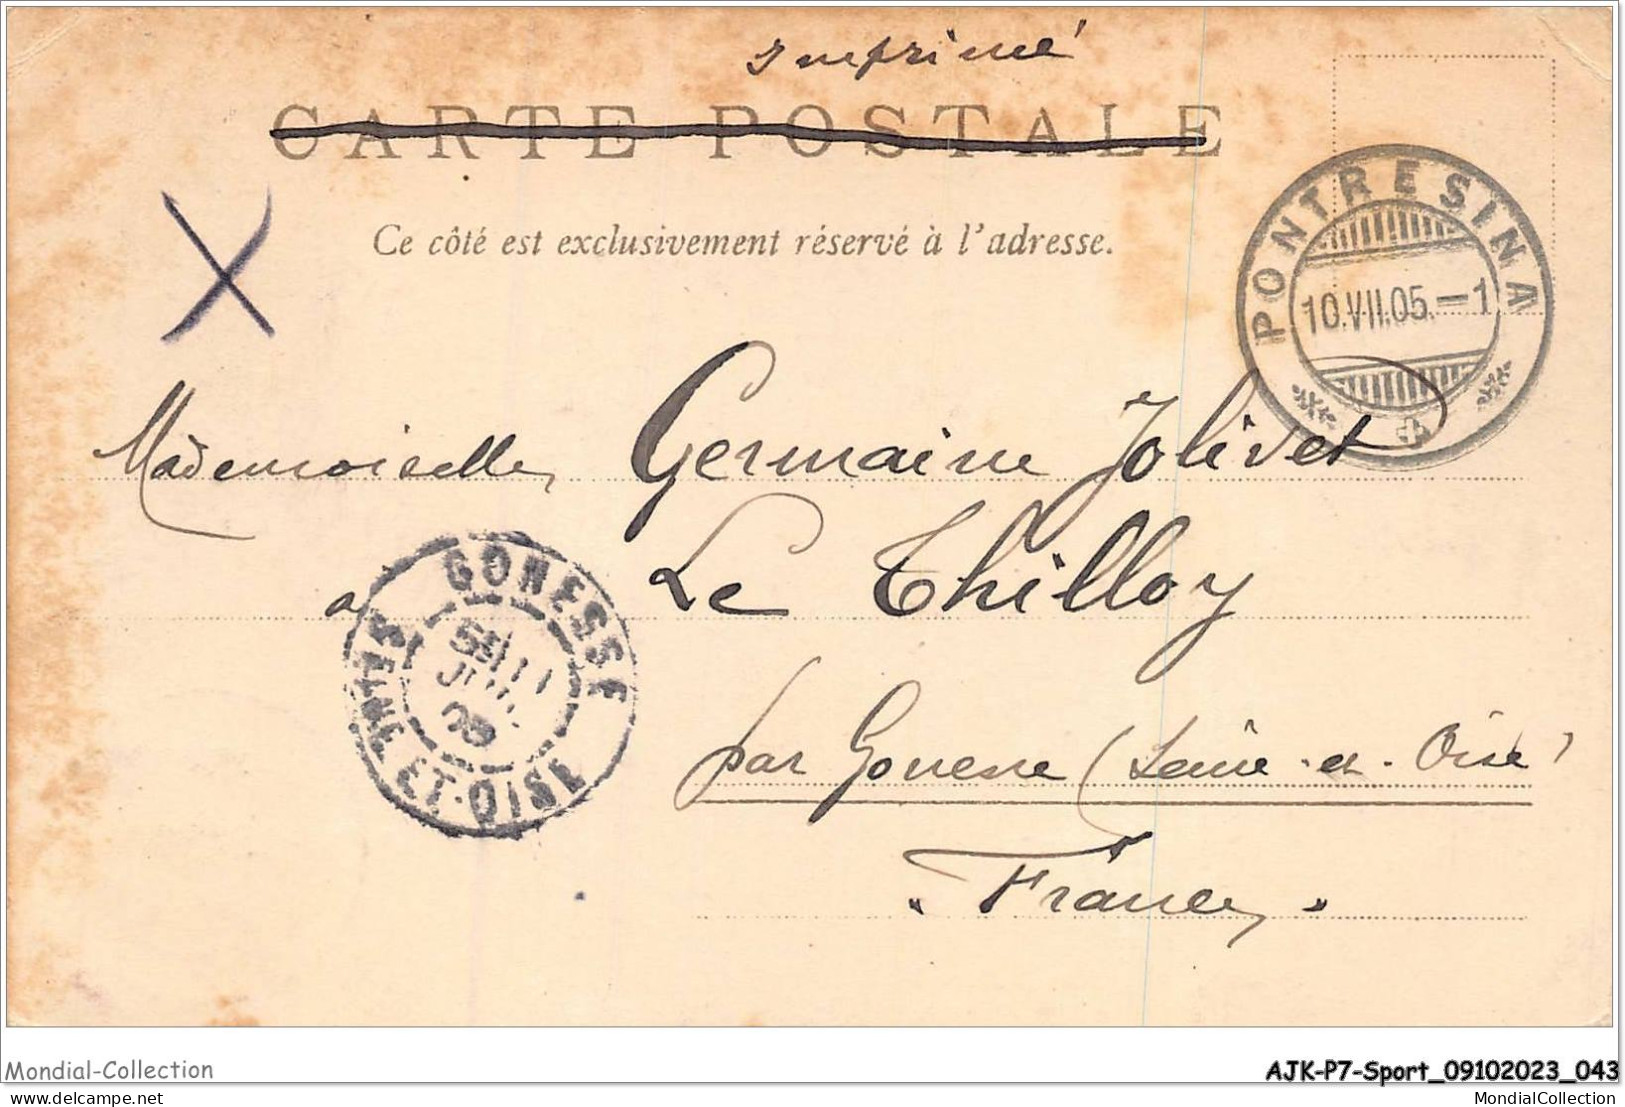 Imprimé
CARTE POSTALE
Ce côté est exclusivement réservé à l'adresse.
PONTRESINA
10.VII.05.-1
Mademoiselle Germaine Jolivet
a Le Thilloy
GONESSE
SEINE ET-OISE
par Gonesse (Seine-et-Oise)
France
Mondial-Collection
AJK-P7-Sport_09102023_043
MondialCollection